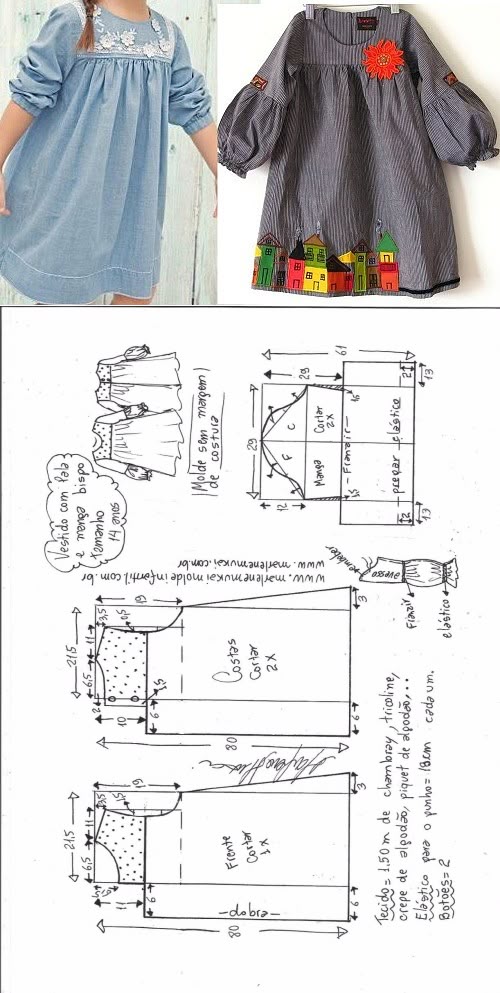 Vestido com pala
e manga bispo
tamanho
14 anos
Molde sem margem
de costura
61
29
2
13
29
F
C
Manga
Cortar
2X
- Franzir -
- pregar elástico
1,5
1,5
12
2
13
www.marlenemukai.com.br
www.marlenemukaimoldeinfantil.com.br
avesso
Franzir
elástico
21,5
11
6,5
3,5
19
10
6
Costas
Cortar
2X
3
6
80
21,5
11
6,5
3,5
19
11
6
Frente
Cortar
1X
- dobra -
3
6
80
Tecido = 1.50m de chambray, tricoline,
crepe de algodão, piquet de algodão,...
Elástico para o punho = 18cm cada um.
Botões = 2